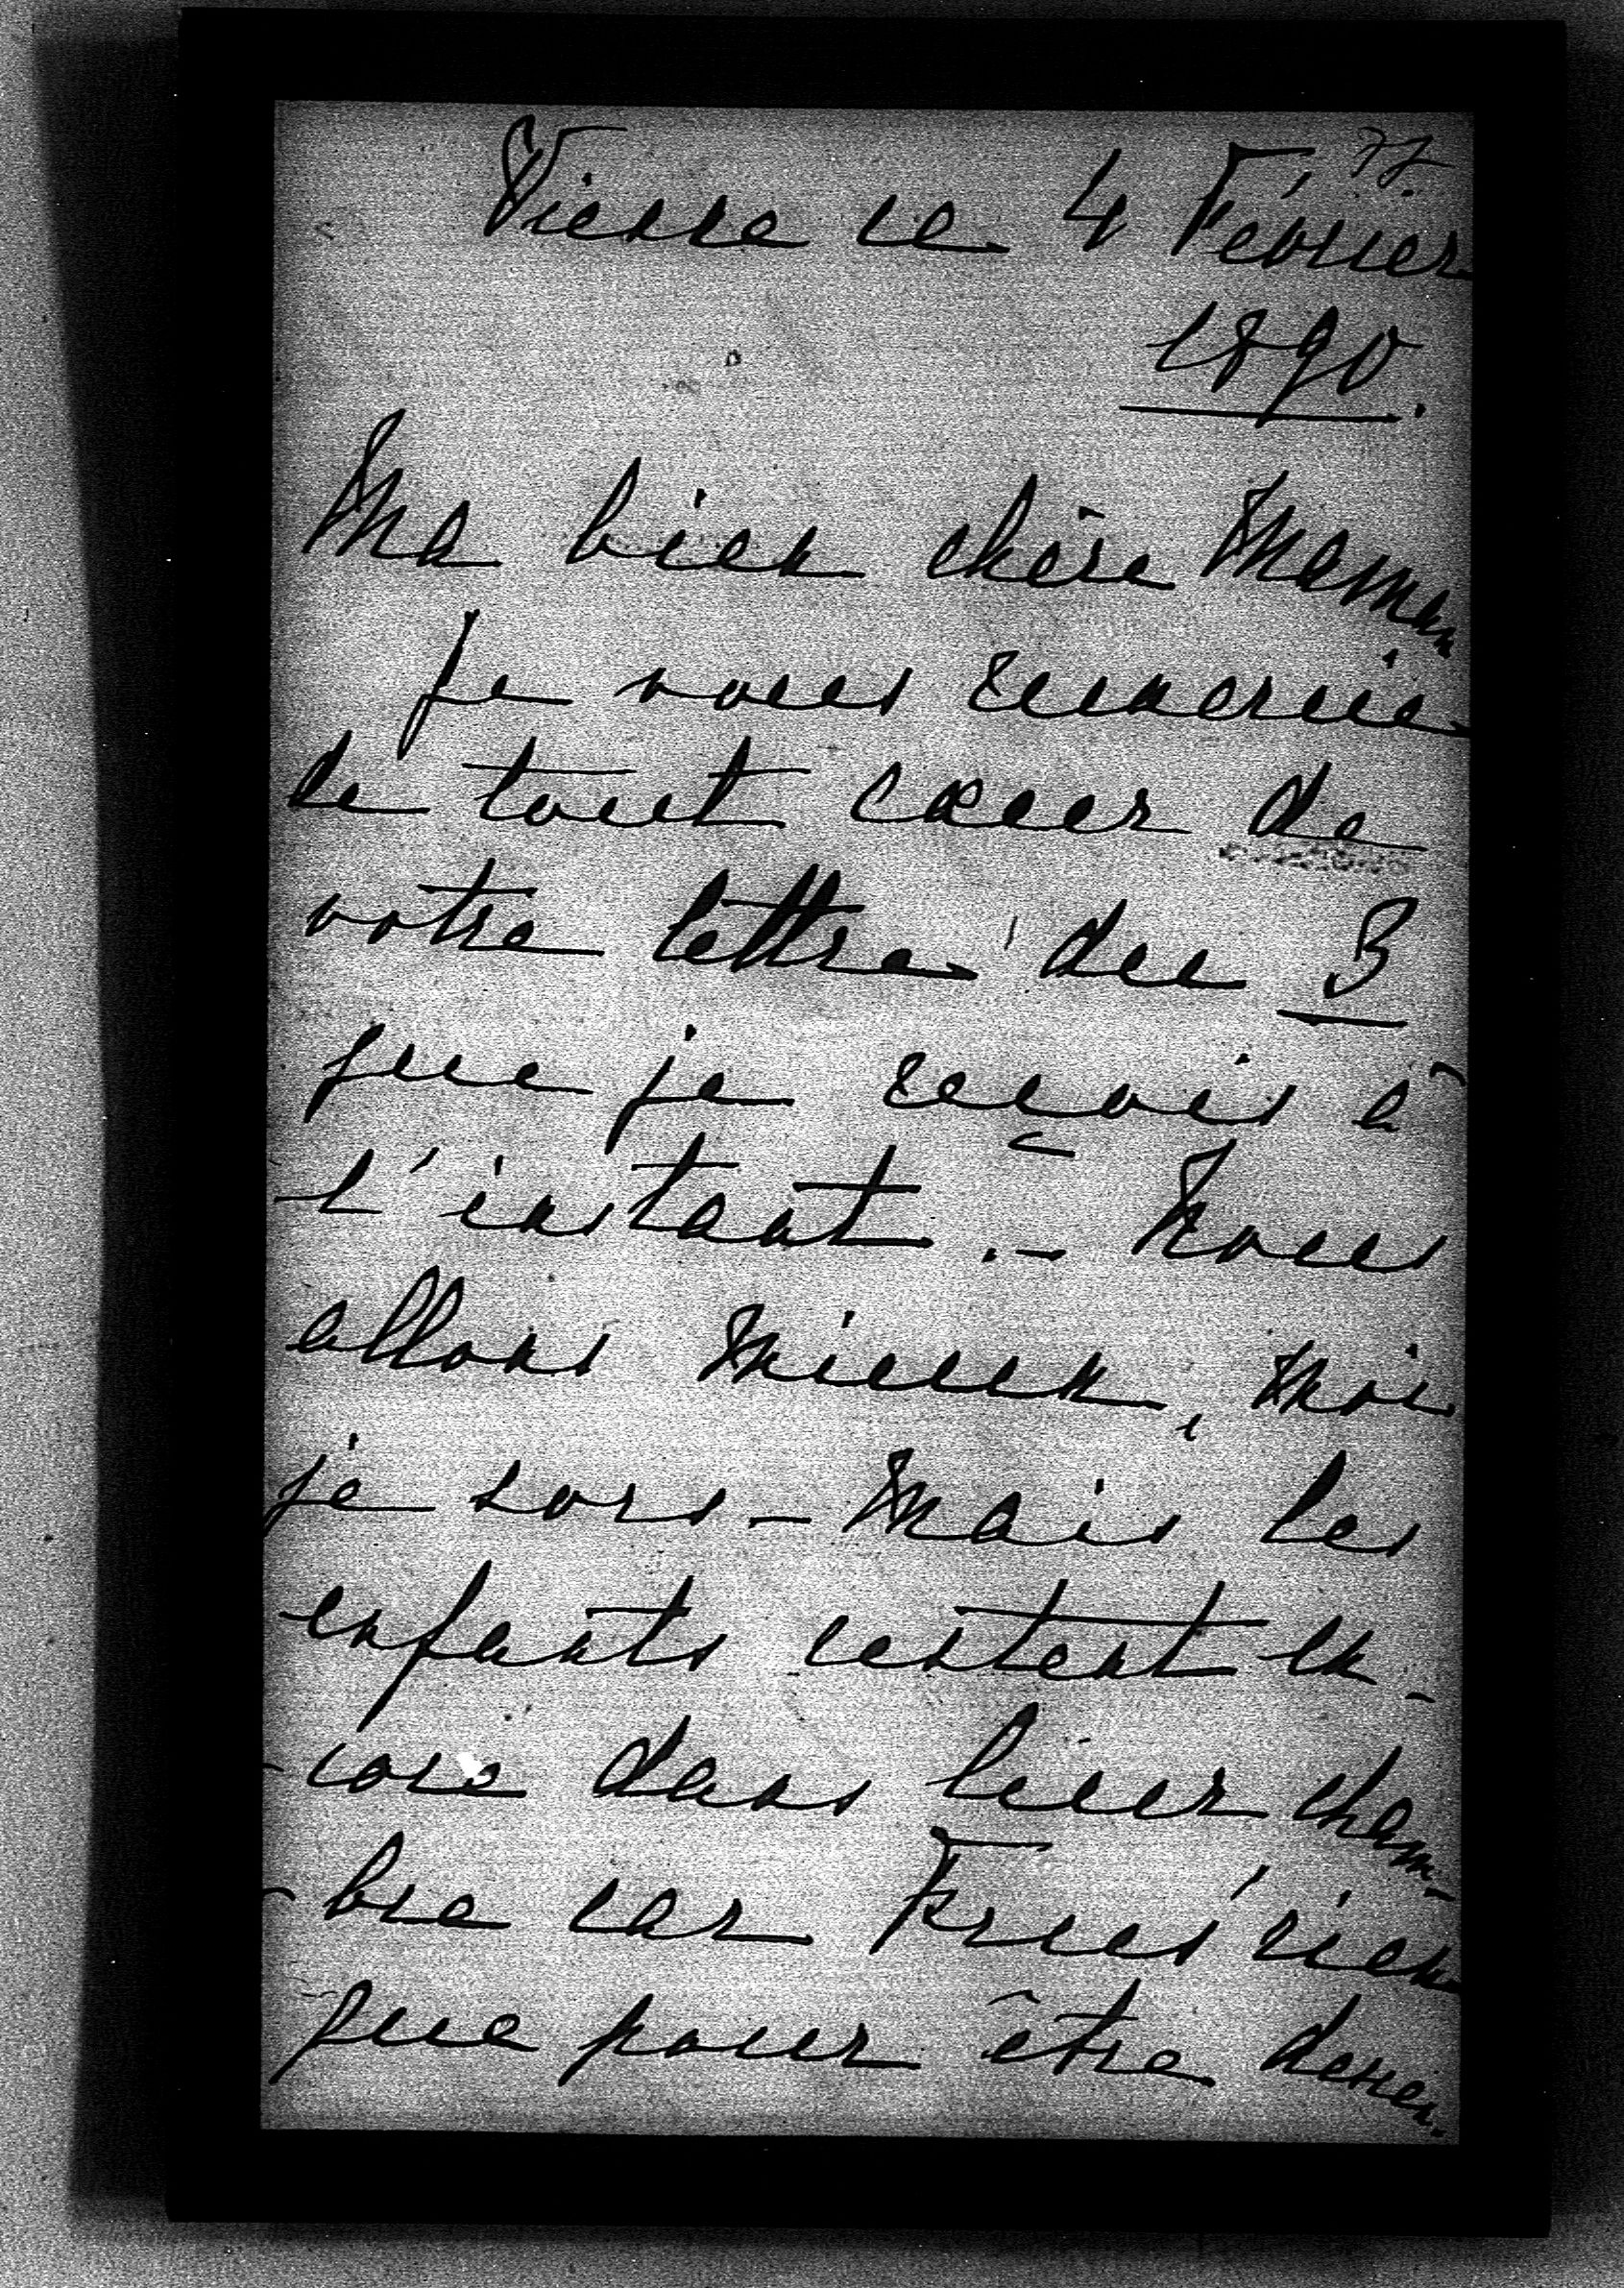 Vienne ce 4 Février
1890.
Ma bien chère Maman
Je vous remercie
de tout cœur de
votre lettre du 3
que je reçois à
l'instant. – Nous
allons mieux, moi
je sors – Mais les
enfants restent en-
-core dans leur cham-
-bre car rien
que pour être